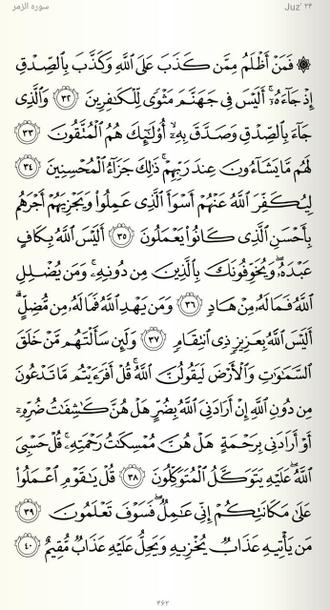 سورة الزمر
Juz' ٢٤
۞ فَمَنْ أَظْلَمُ مِمَّن كَذَبَ عَلَى ٱللَّهِ وَكَذَّبَ بِٱلصِّدْقِ
إِذْ جَآءَهُۥٓ ۚ أَلَيْسَ فِى جَهَنَّمَ مَثْوًى لِّلْكَـٰفِرِينَ ٣٢ وَٱلَّذِى
جَآءَ بِٱلصِّدْقِ وَصَدَّقَ بِهِۦٓ ۙ أُو۟لَـٰٓئِكَ هُمُ ٱلْمُتَّقُونَ ٣٣
لَهُم مَّا يَشَآءُونَ عِندَ رَبِّهِمْ ۚ ذَٰلِكَ جَزَآءُ ٱلْمُحْسِنِينَ ٣٤
لِيُكَفِّرَ ٱللَّهُ عَنْهُمْ أَسْوَأَ ٱلَّذِى عَمِلُوا۟ وَيَجْزِيَهُمْ أَجْرَهُم
بِأَحْسَنِ ٱلَّذِى كَانُوا۟ يَعْمَلُونَ ٣٥ أَلَيْسَ ٱللَّهُ بِكَافٍ
عَبْدَهُۥ ۖ وَيُخَوِّفُونَكَ بِٱلَّذِينَ مِن دُونِهِۦ ۚ وَمَن يُضْلِلِ
ٱللَّهُ فَمَا لَهُۥ مِنْ هَادٍ ٣٦ وَمَن يَهْدِ ٱللَّهُ فَمَا لَهُۥ مِن مُّضِلٍّ ۗ
أَلَيْسَ ٱللَّهُ بِعَزِيزٍ ذِى ٱنتِقَامٍ ٣٧ وَلَئِن سَأَلْتَهُم مَّنْ خَلَقَ
ٱلسَّمَـٰوَٰتِ وَٱلْأَرْضَ لَيَقُولُنَّ ٱللَّهُ ۚ قُلْ أَفَرَءَيْتُم مَّا تَدْعُونَ
مِن دُونِ ٱللَّهِ إِنْ أَرَادَنِىَ ٱللَّهُ بِضُرٍّ هَلْ هُنَّ كَـٰشِفَـٰتُ ضُرِّهِۦٓ
أَوْ أَرَادَنِى بِرَحْمَةٍ هَلْ هُنَّ مُمْسِكَـٰتُ رَحْمَتِهِۦ ۚ قُلْ حَسْبِىَ
ٱللَّهُ ۖ عَلَيْهِ يَتَوَكَّلُ ٱلْمُتَوَكِّلُونَ ٣٨ قُلْ يَـٰقَوْمِ ٱعْمَلُوا۟
عَلَىٰ مَكَانَتِكُمْ إِنِّى عَـٰمِلٌ ۖ فَسَوْفَ تَعْلَمُونَ ٣٩
مَن يَأْتِيهِ عَذَابٌ يُخْزِيهِ وَيَحِلُّ عَلَيْهِ عَذَابٌ مُّقِيمٌ ٤٠
٤٦٢